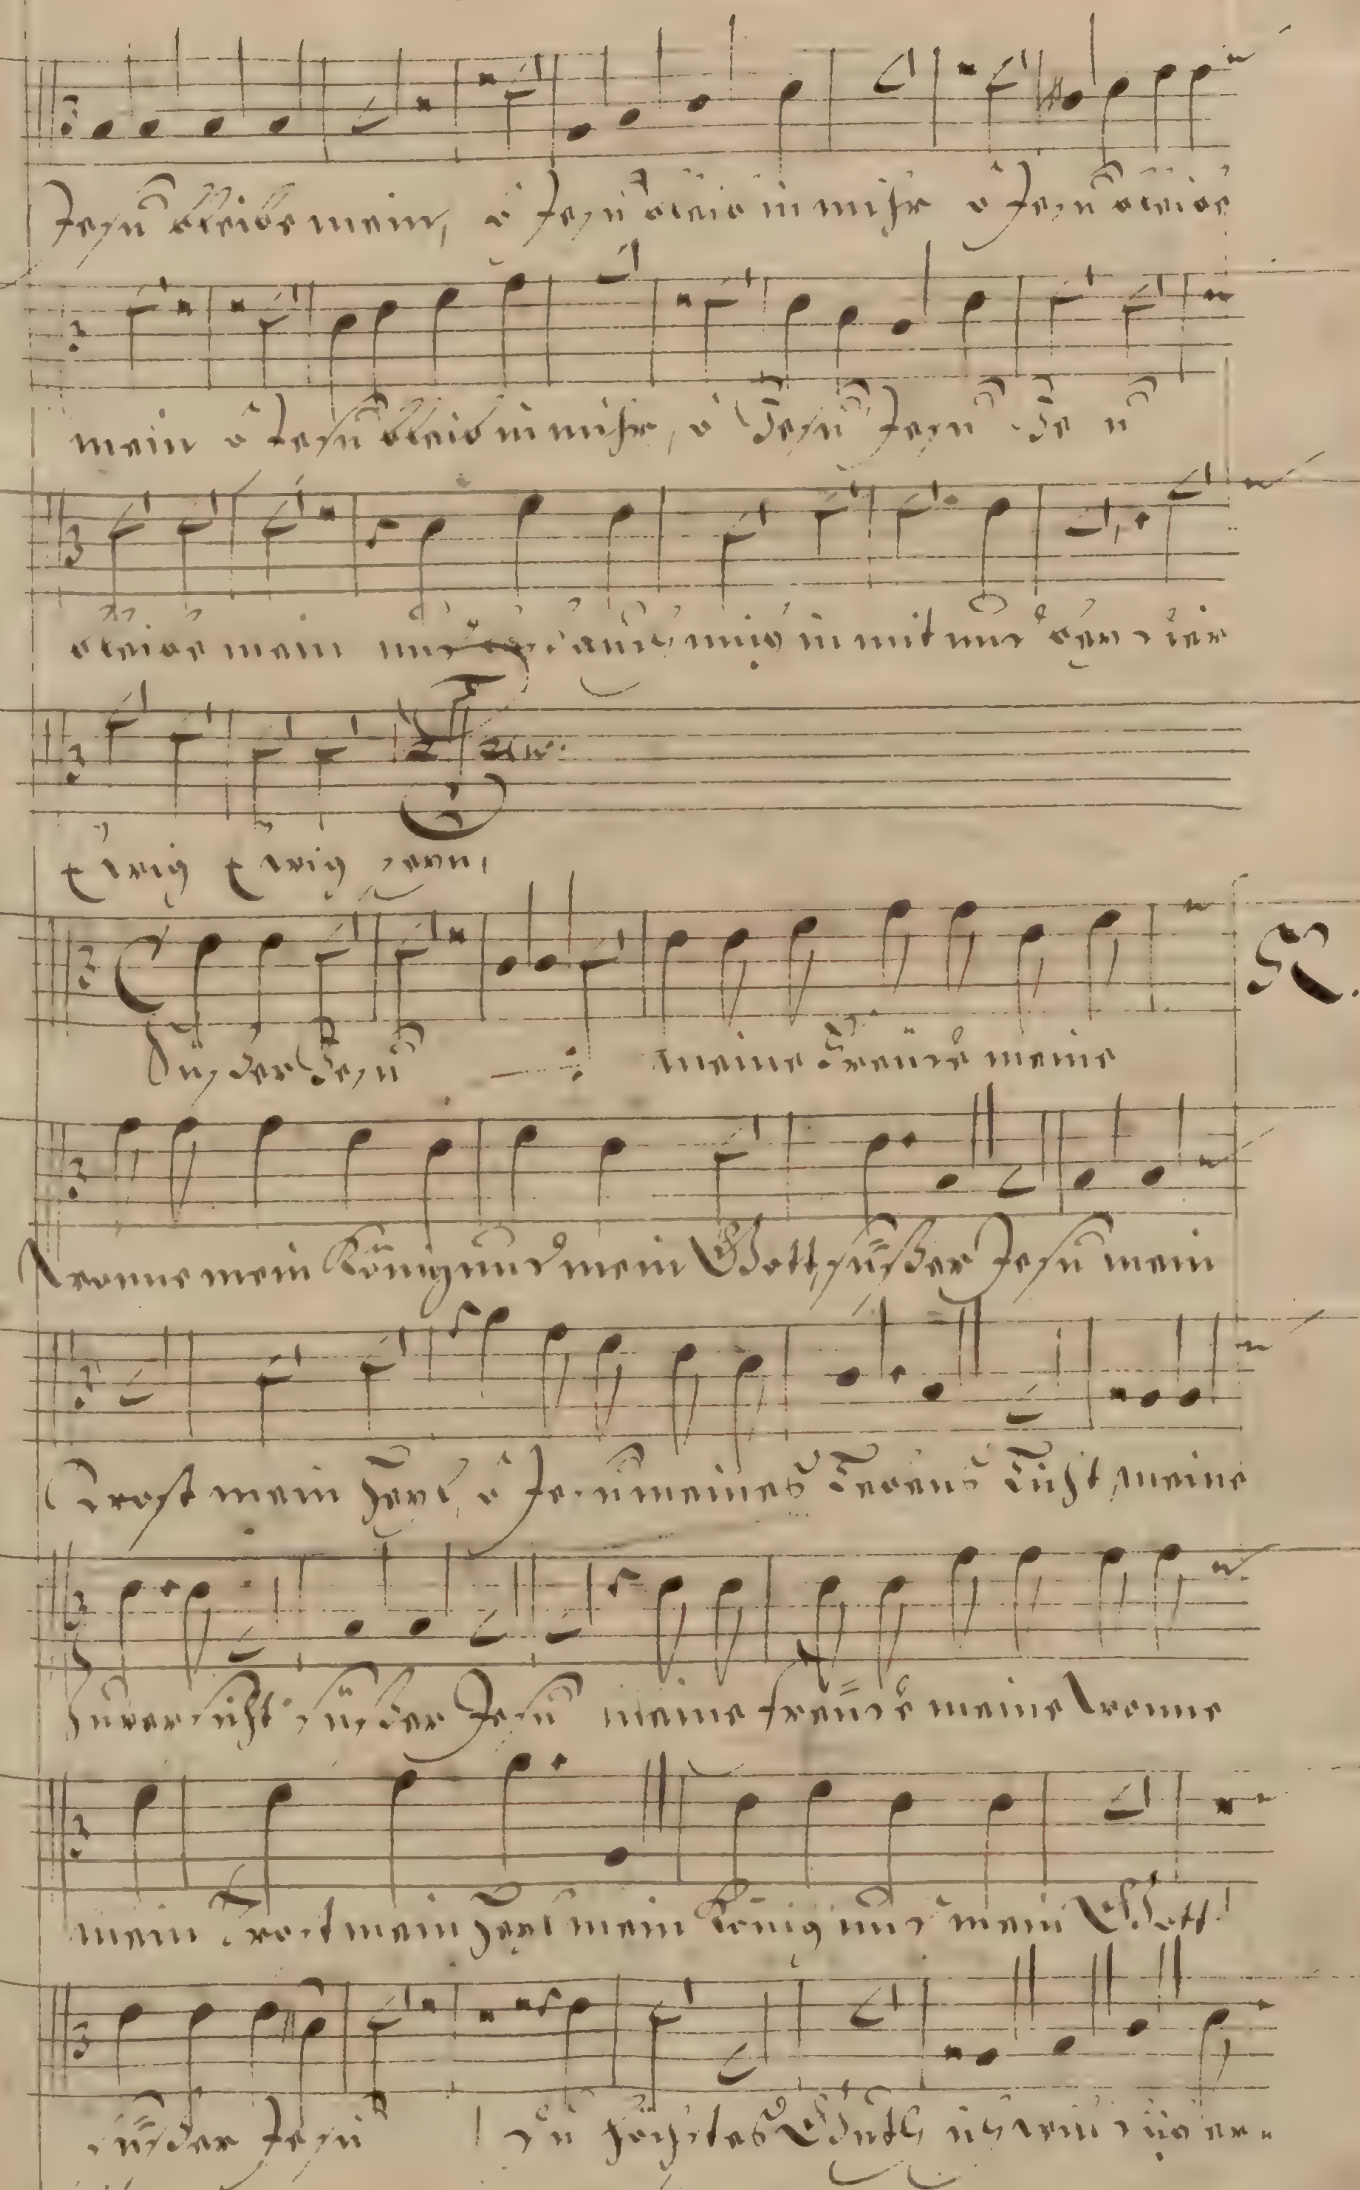 Jesu bleibe mein, o Jesu bleib in mihr o Jesu bleibe
mein o Jesu bleib in mihr, o Jesu Jesu Je u
bleibe mein und auch in mit und
Ewig Ewig
Süßer Jesu meine Freude meine
Wonne mein König und mein Gott, süßer Jesu mein
Trost mein Heyl, o Jesu meines Lebens Licht, meine
Zuversicht süßer Jesu meine freude meine Wonne
mein Trost mein Heyl mein König und mein Gott!
süßer Jesu du höchstes Guth ich will